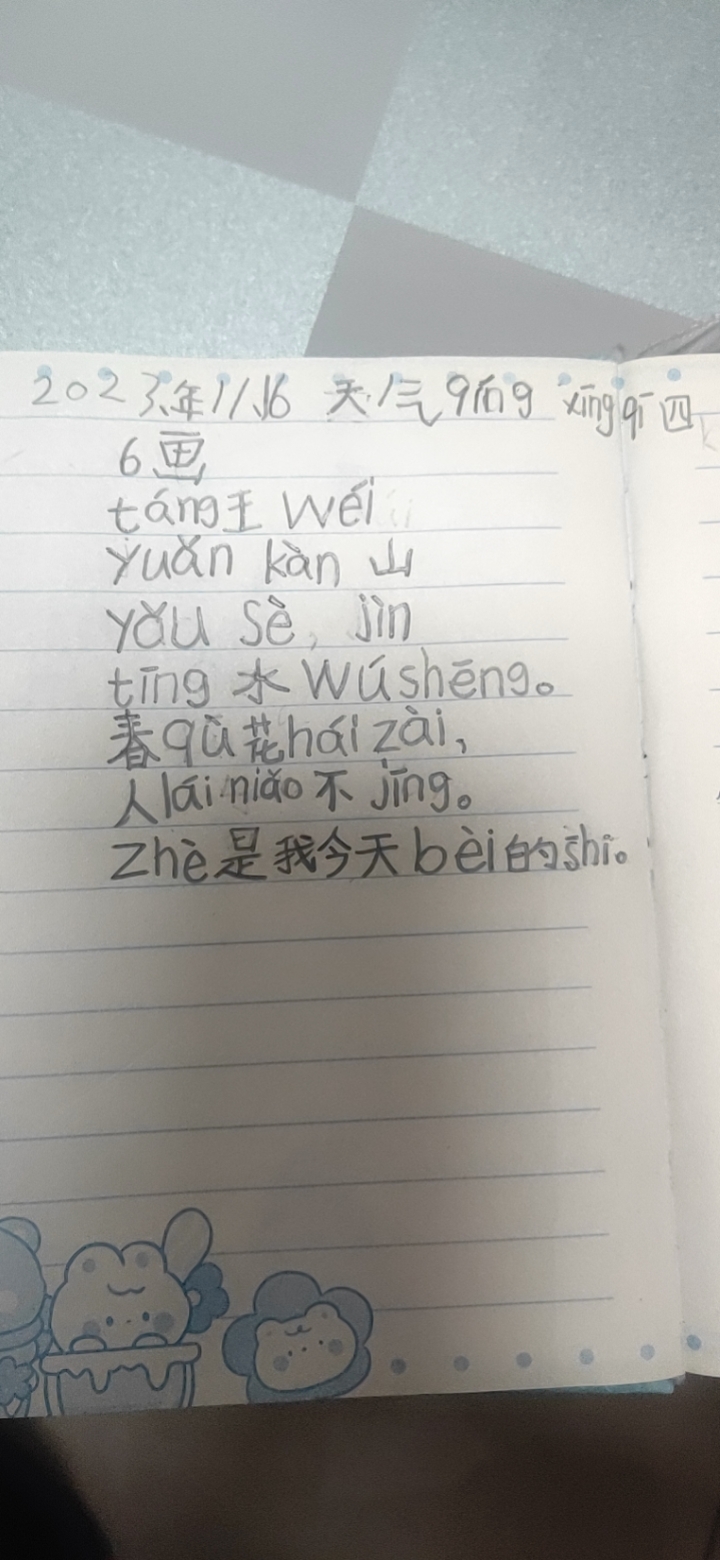 2023年11.16 天气qíng xīngqī四
6画
táng王 wéi
yuǎn kàn 山
yǒu sè, jìn
tīng 水 wú shēng。
春qù花hái zài,
人lái niǎo不 jīng。
zhè是我今天bèi的shī。